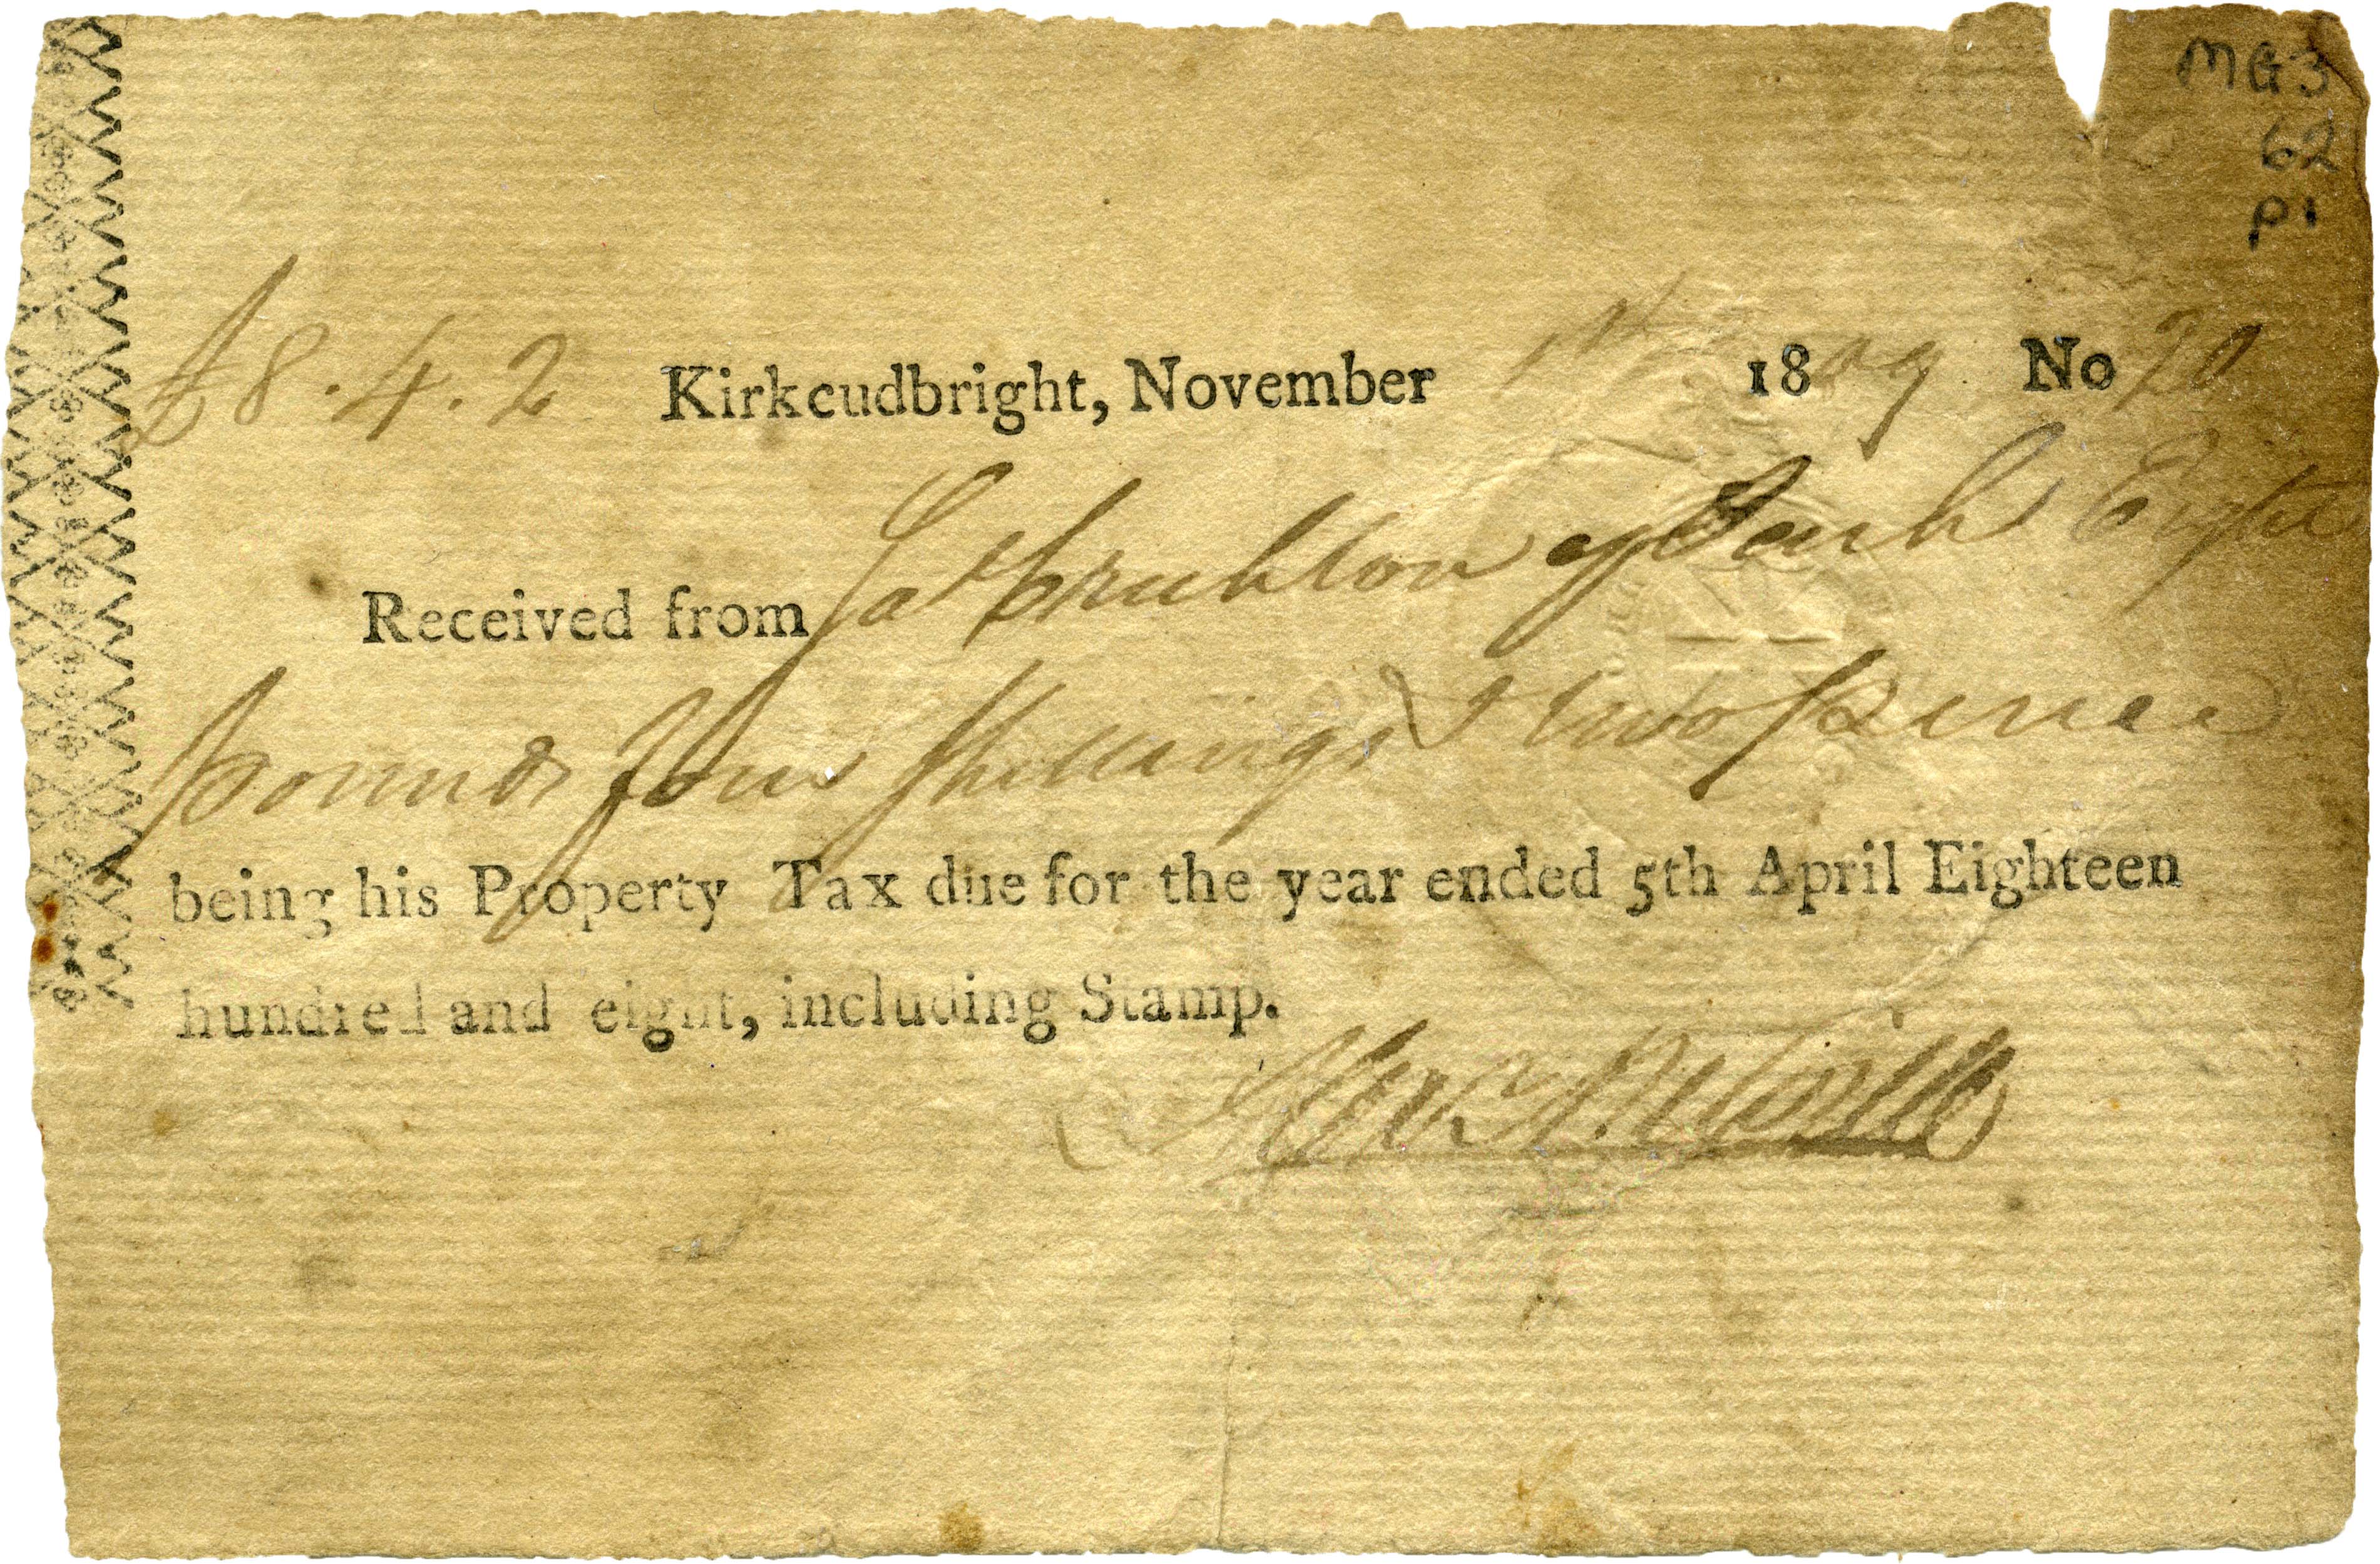 MG3
62
P1
£8.4.2 Kirkcudbright, November 1st 1809 No 20
Received from Ja of Eight
pounds four shillings & two pence
being his Property Tax due for the year ended 5th April Eighteen
hundred and eight, including Stamp.